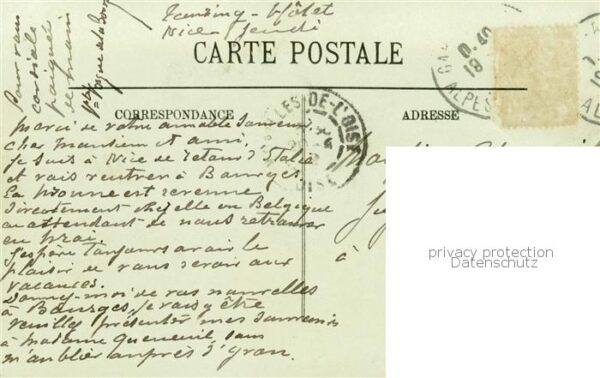 Tamsing-Hôtel
Nice Jeudi
Pour vous
cordiale
poignée
de main
CARTE POSTALE
CORRESPONDANCE
ADRESSE
DE-L'OISE
ALPES
Merci de votre aimable souvenir,
cher Monsieur et ami,
Je suis à Nice de retour d'Italie
et vais rentrer à Bourges.
La bonne est revenue
directement chez elle en Belgique
en attendant de nous retrouver
en
J'espère toujours avoir le
plaisir de vous revoir aux
vacances.
Donnez-moi de vos nouvelles
à Bourges, je vais y être
veuillez présenter mes souvenirs
à Madame Queneuil, sans
m'oublier auprès d'Yvan.
à
privacy protection
Datenschutz